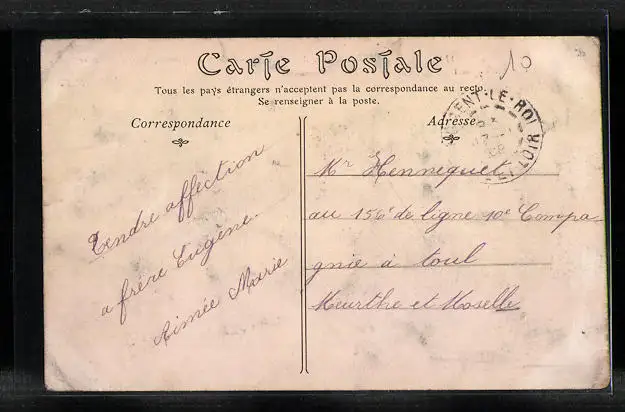 Carte Postale
10
Tous les pays étrangers n'acceptent pas la correspondance au recto.
Se renseigner à la poste.
Correspondance
Adresse
LE-ROI
LOIR
Tendre affection
a frère Eugène
Aimée Marie
Mr Hennequet
au 156e de ligne 10e Compa-
gnie à toul
Meurthe et Moselle